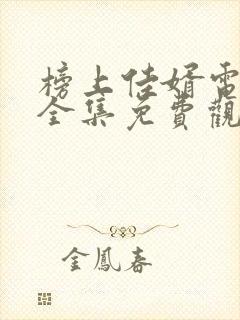 榜上佳婿電
全集免費觀
金鳳春